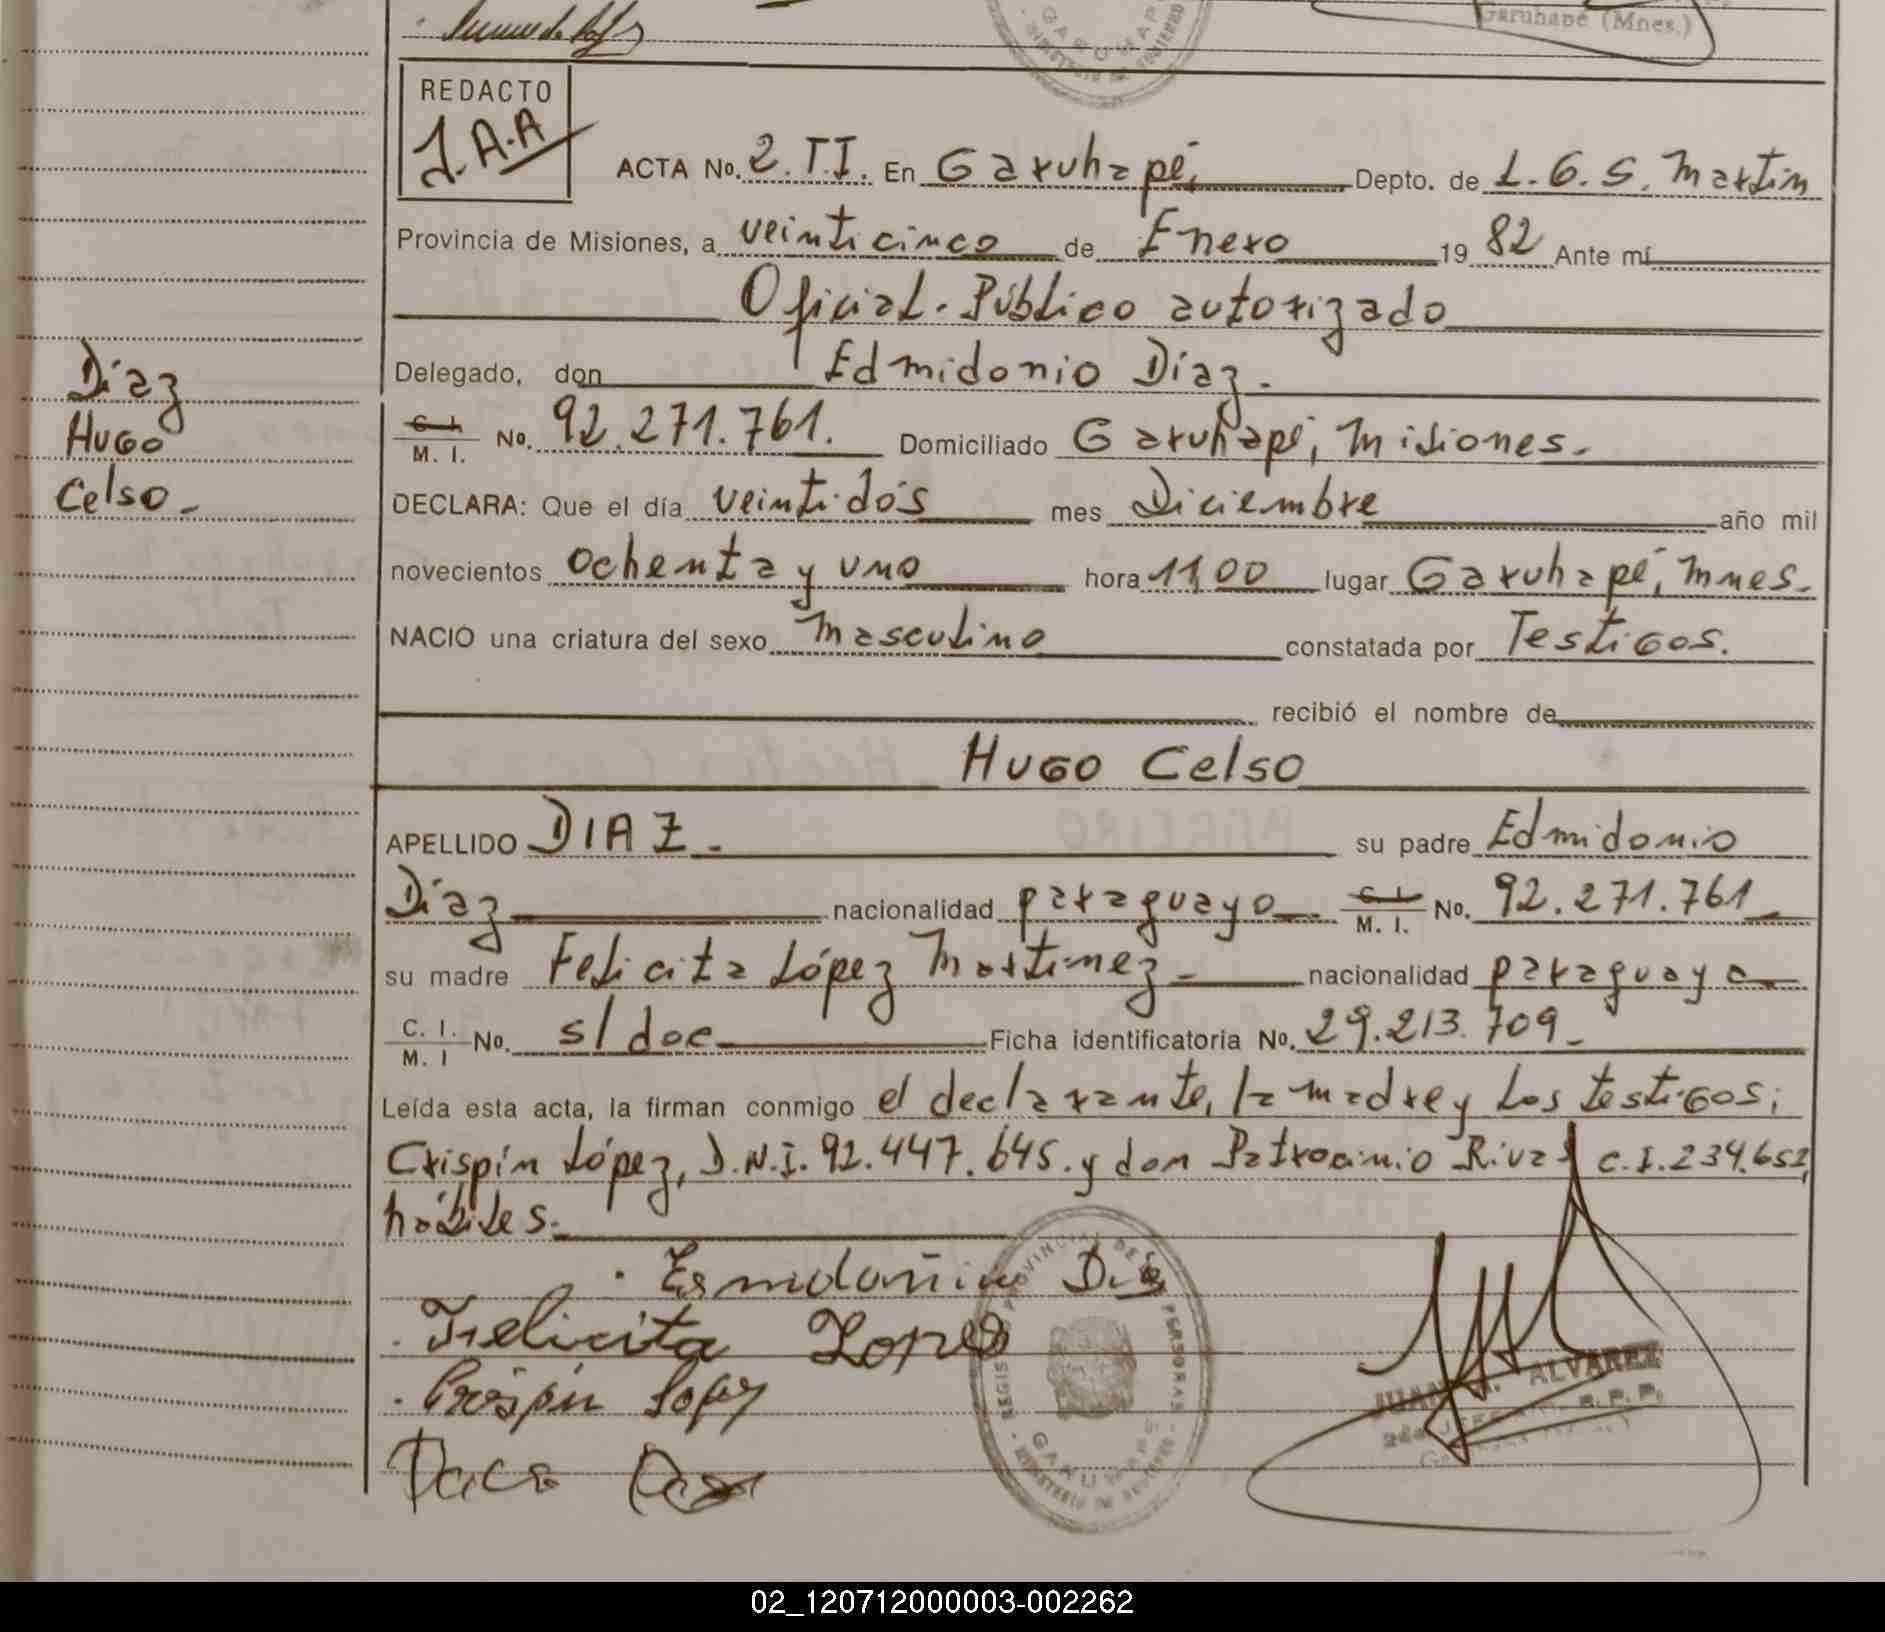 Garuhapé (Mnes.)
REDACTO
J.A.A
ACTA No. 2.T.I. En Garuhapé, Depto. de L.G.S. Martin
Provincia de Misiones, a veinticinco de Enero 1982 Ante mí
Oficial Público autorizado
Delegado, don Edmidonio Díaz.
C. I. / M. I. No. 92.271.761. Domiciliado Garuhapé, Misiones.
DECLARA: Que el día veintidós mes Diciembre año mil
novecientos ochenta y uno hora 11,00 lugar Garuhapé, Mnes.
NACIÓ una criatura del sexo masculino constatada por Testigos.
recibió el nombre de
HUGO Celso
APELLIDO DIAZ. su padre Edmidonio
Díaz nacionalidad paraguayo C. I. / M. I. No. 92.271.761
su madre Felicita López Martinez nacionalidad paraguaya
C. I. / M. I No. s/doc Ficha identificatoria No. 29.213.709
Leída esta acta, la firman conmigo el declarante, la madre y los testigos;
Crispín López, D.N.I. 92.447.645. y don Patrocinio Rivas C.I. 234.652,
hábiles.
Díaz
Hugo
Celso
Esmidonio Diaz
Felicita Lopez
Crispin Lopez
REGISTRO PROVINCIAL DE LAS PERSONAS
GARUHAPE
MINISTERIO DE GOBIERNO
JUAN A. ALVAREZ
02_120712000003-002262